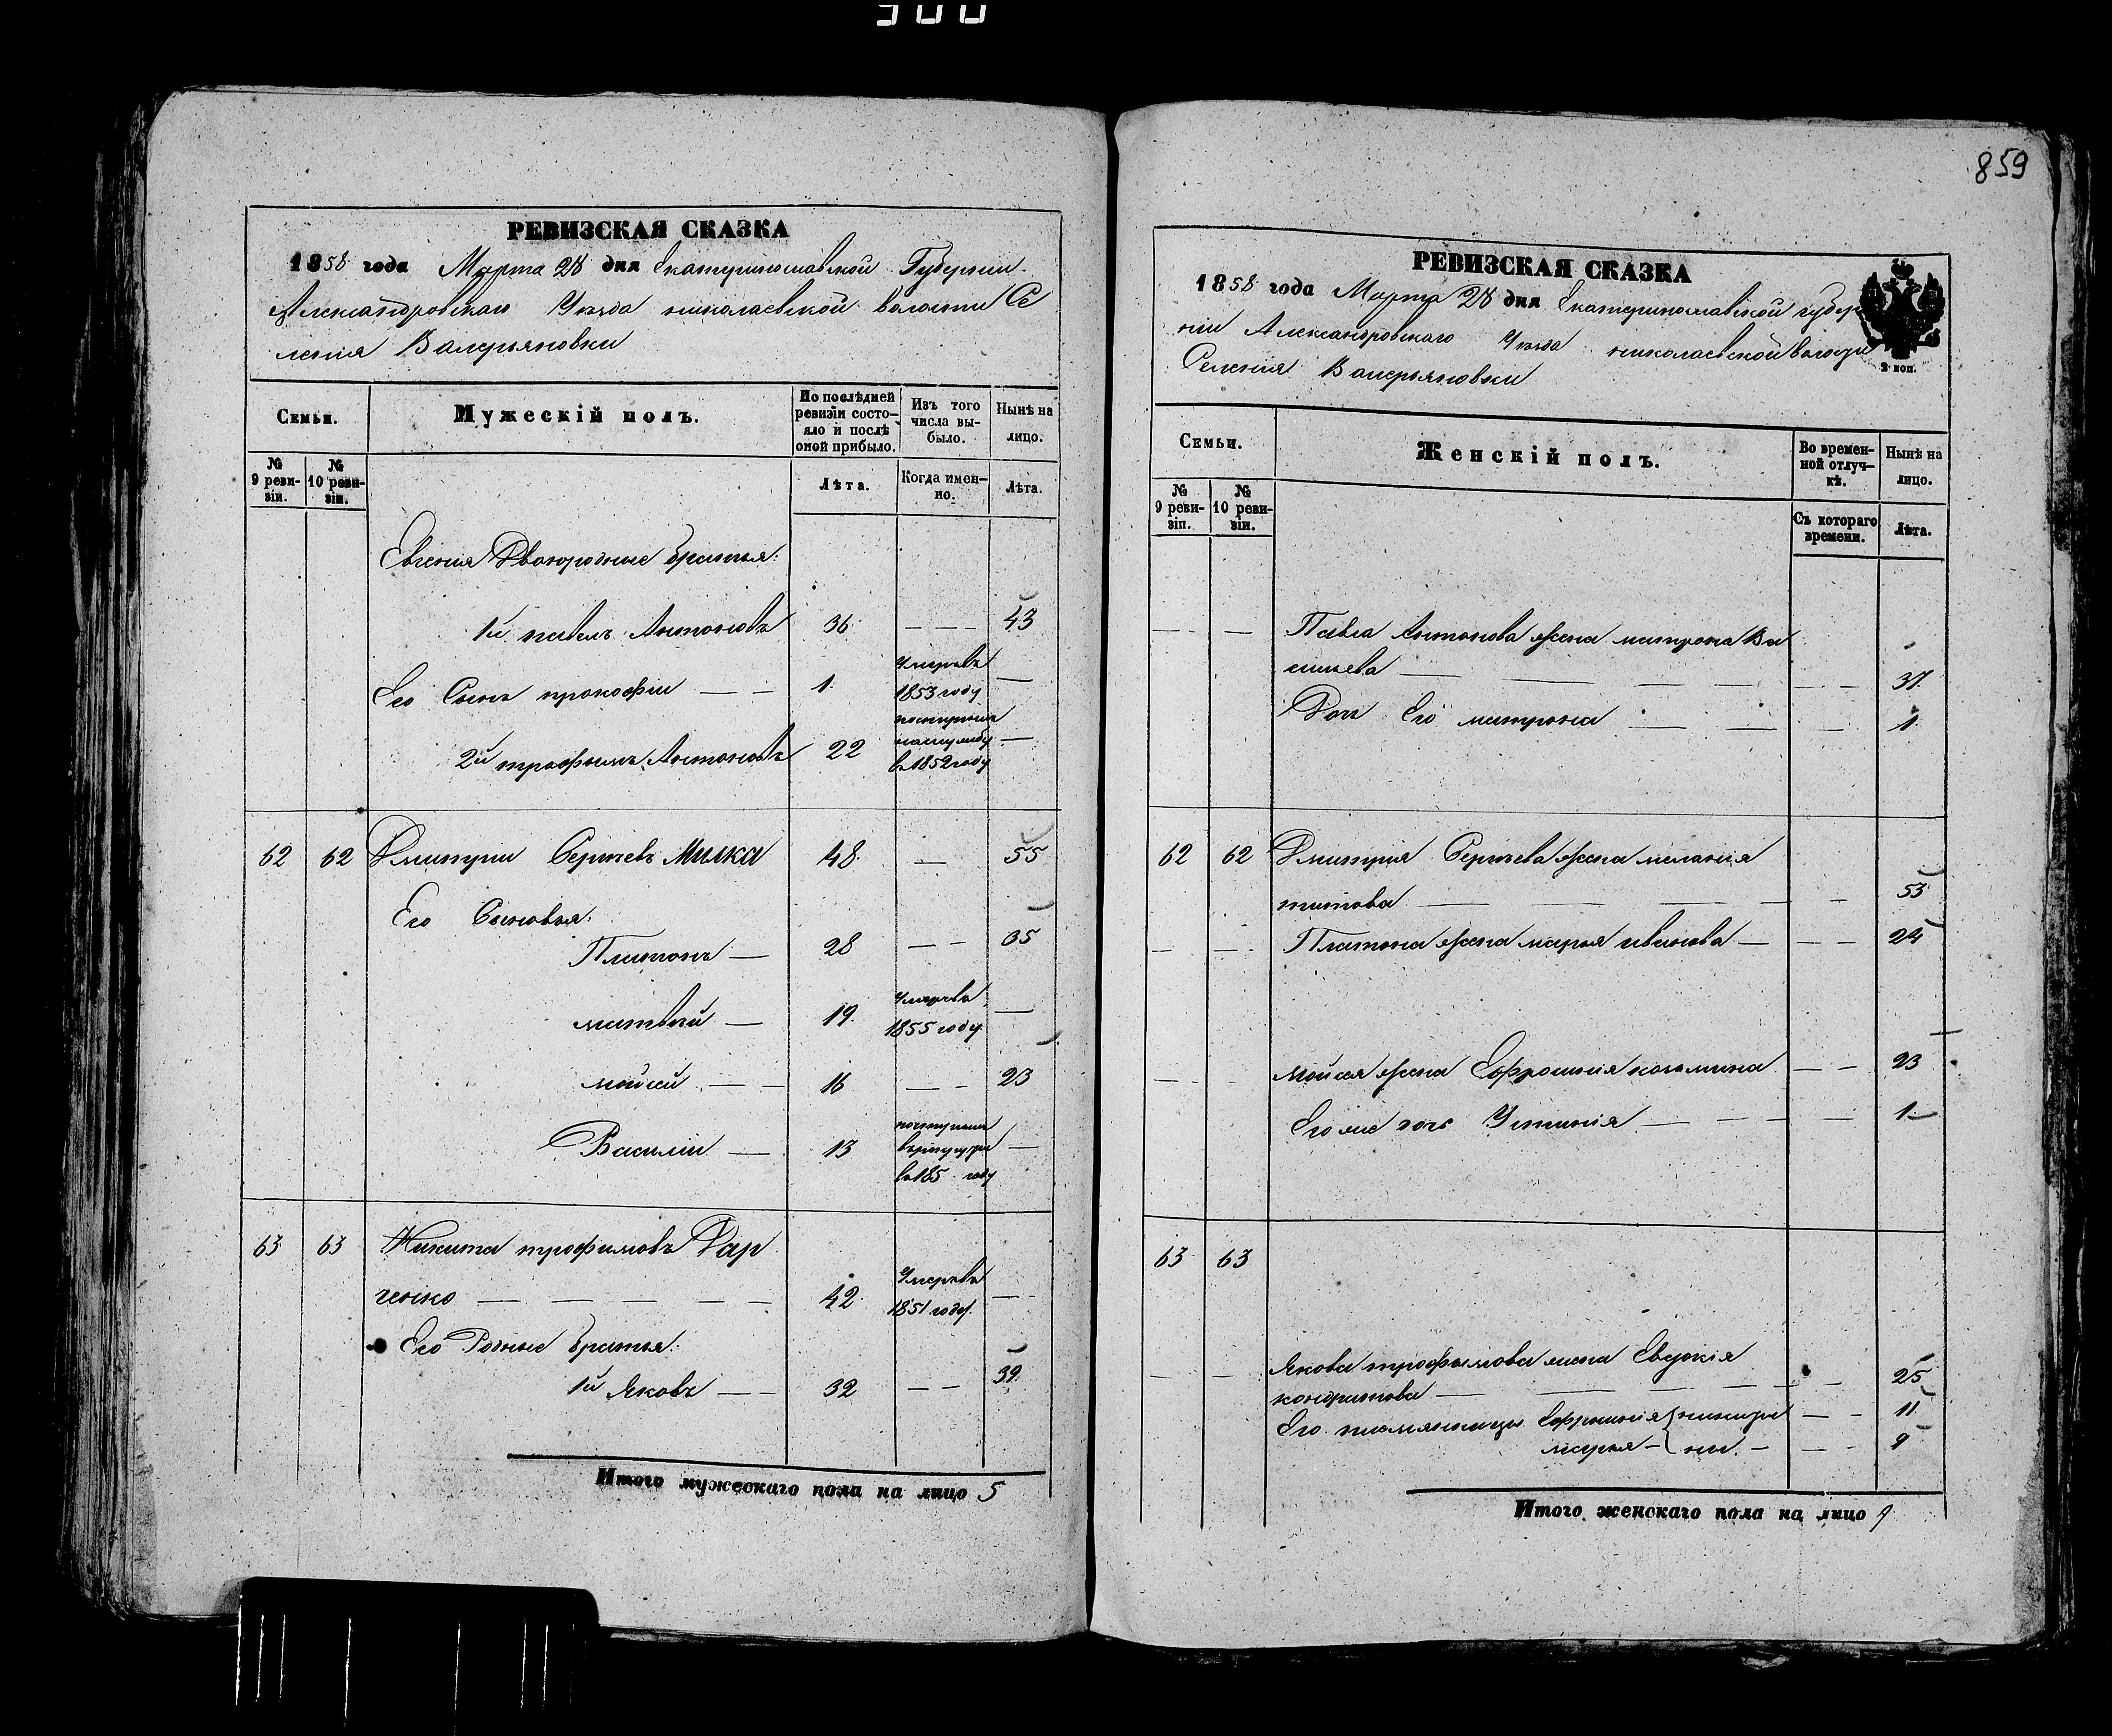 859
РЕВИЗСКАЯ СКАЗКА
1858 года Марта 28 дня Екатеринославской Губернии
Александровскаго Уезда николаевской волости Се
ления Валерьяновки
Семьи.
Мужескій полъ.
По послѣдней ревизіи состояло и послѣ оной прибыло.
Изъ того числа выбыло.
Нынѣ на лицо.
№ 9 ревизіи.
№ 10 ревизіи.
Лѣта.
Когда именно.
Лѣта.
Евгения Двоюродные братья:
1й павелъ Антоновъ 36 — — 43
Его Сынъ прокофии — — 1. Умеръ въ 1853 году —
2й трофимъ Антоновъ 22 поступилъ в 1852 году —
62 62 Дмитрии Сергеевъ Милка 48 — 55
Его Сыновья:
Платонъ — 28 — — 35
матвей — 19 Умеръ в 1855 году —
мойсей — — 16 — — 23
Василии — 13 поступилъ в 185 году —
63 63 Никита трофимовъ Дар
ченко — — — — — 42 Умеръ в 1851 году —
Его Родные братья:
1й Яковъ — — 32 — — 39.
Итого мужескаго пола на лицо 5
РЕВИЗСКАЯ СКАЗКА
1858 года Марта 28 дня Екатеринославской губер
нии Александровскаго Уезда николаевской волости
Селения Валерьяновки
2 коп.
Семьи.
Женскій полъ.
Во временной отлучкѣ.
Нынѣ на лицо.
№ 9 ревизіи.
№ 10 ревизіи.
Съ котораго времени.
Лѣта.
— — Павла Антонова жена матрона Ва
сильева — — — — — — 37.
Дочь Его матрона — — — — 1
62 62 Дмитрия Сергеева жена мелания
титова — — — — — 53
— — Платона жена марья иванова — — — 24
— — Мойсея жена Ефросиния козьмина — — 23
Его же дочь Устиния — — — — 1
63 63
— — Якова трофимова жена Евдокия
кондратова — — — — — 25
Его племянницы Ефросиния } никити — — 11
марья — } ны. — — — 9
Итого женскаго пола на лицо 9